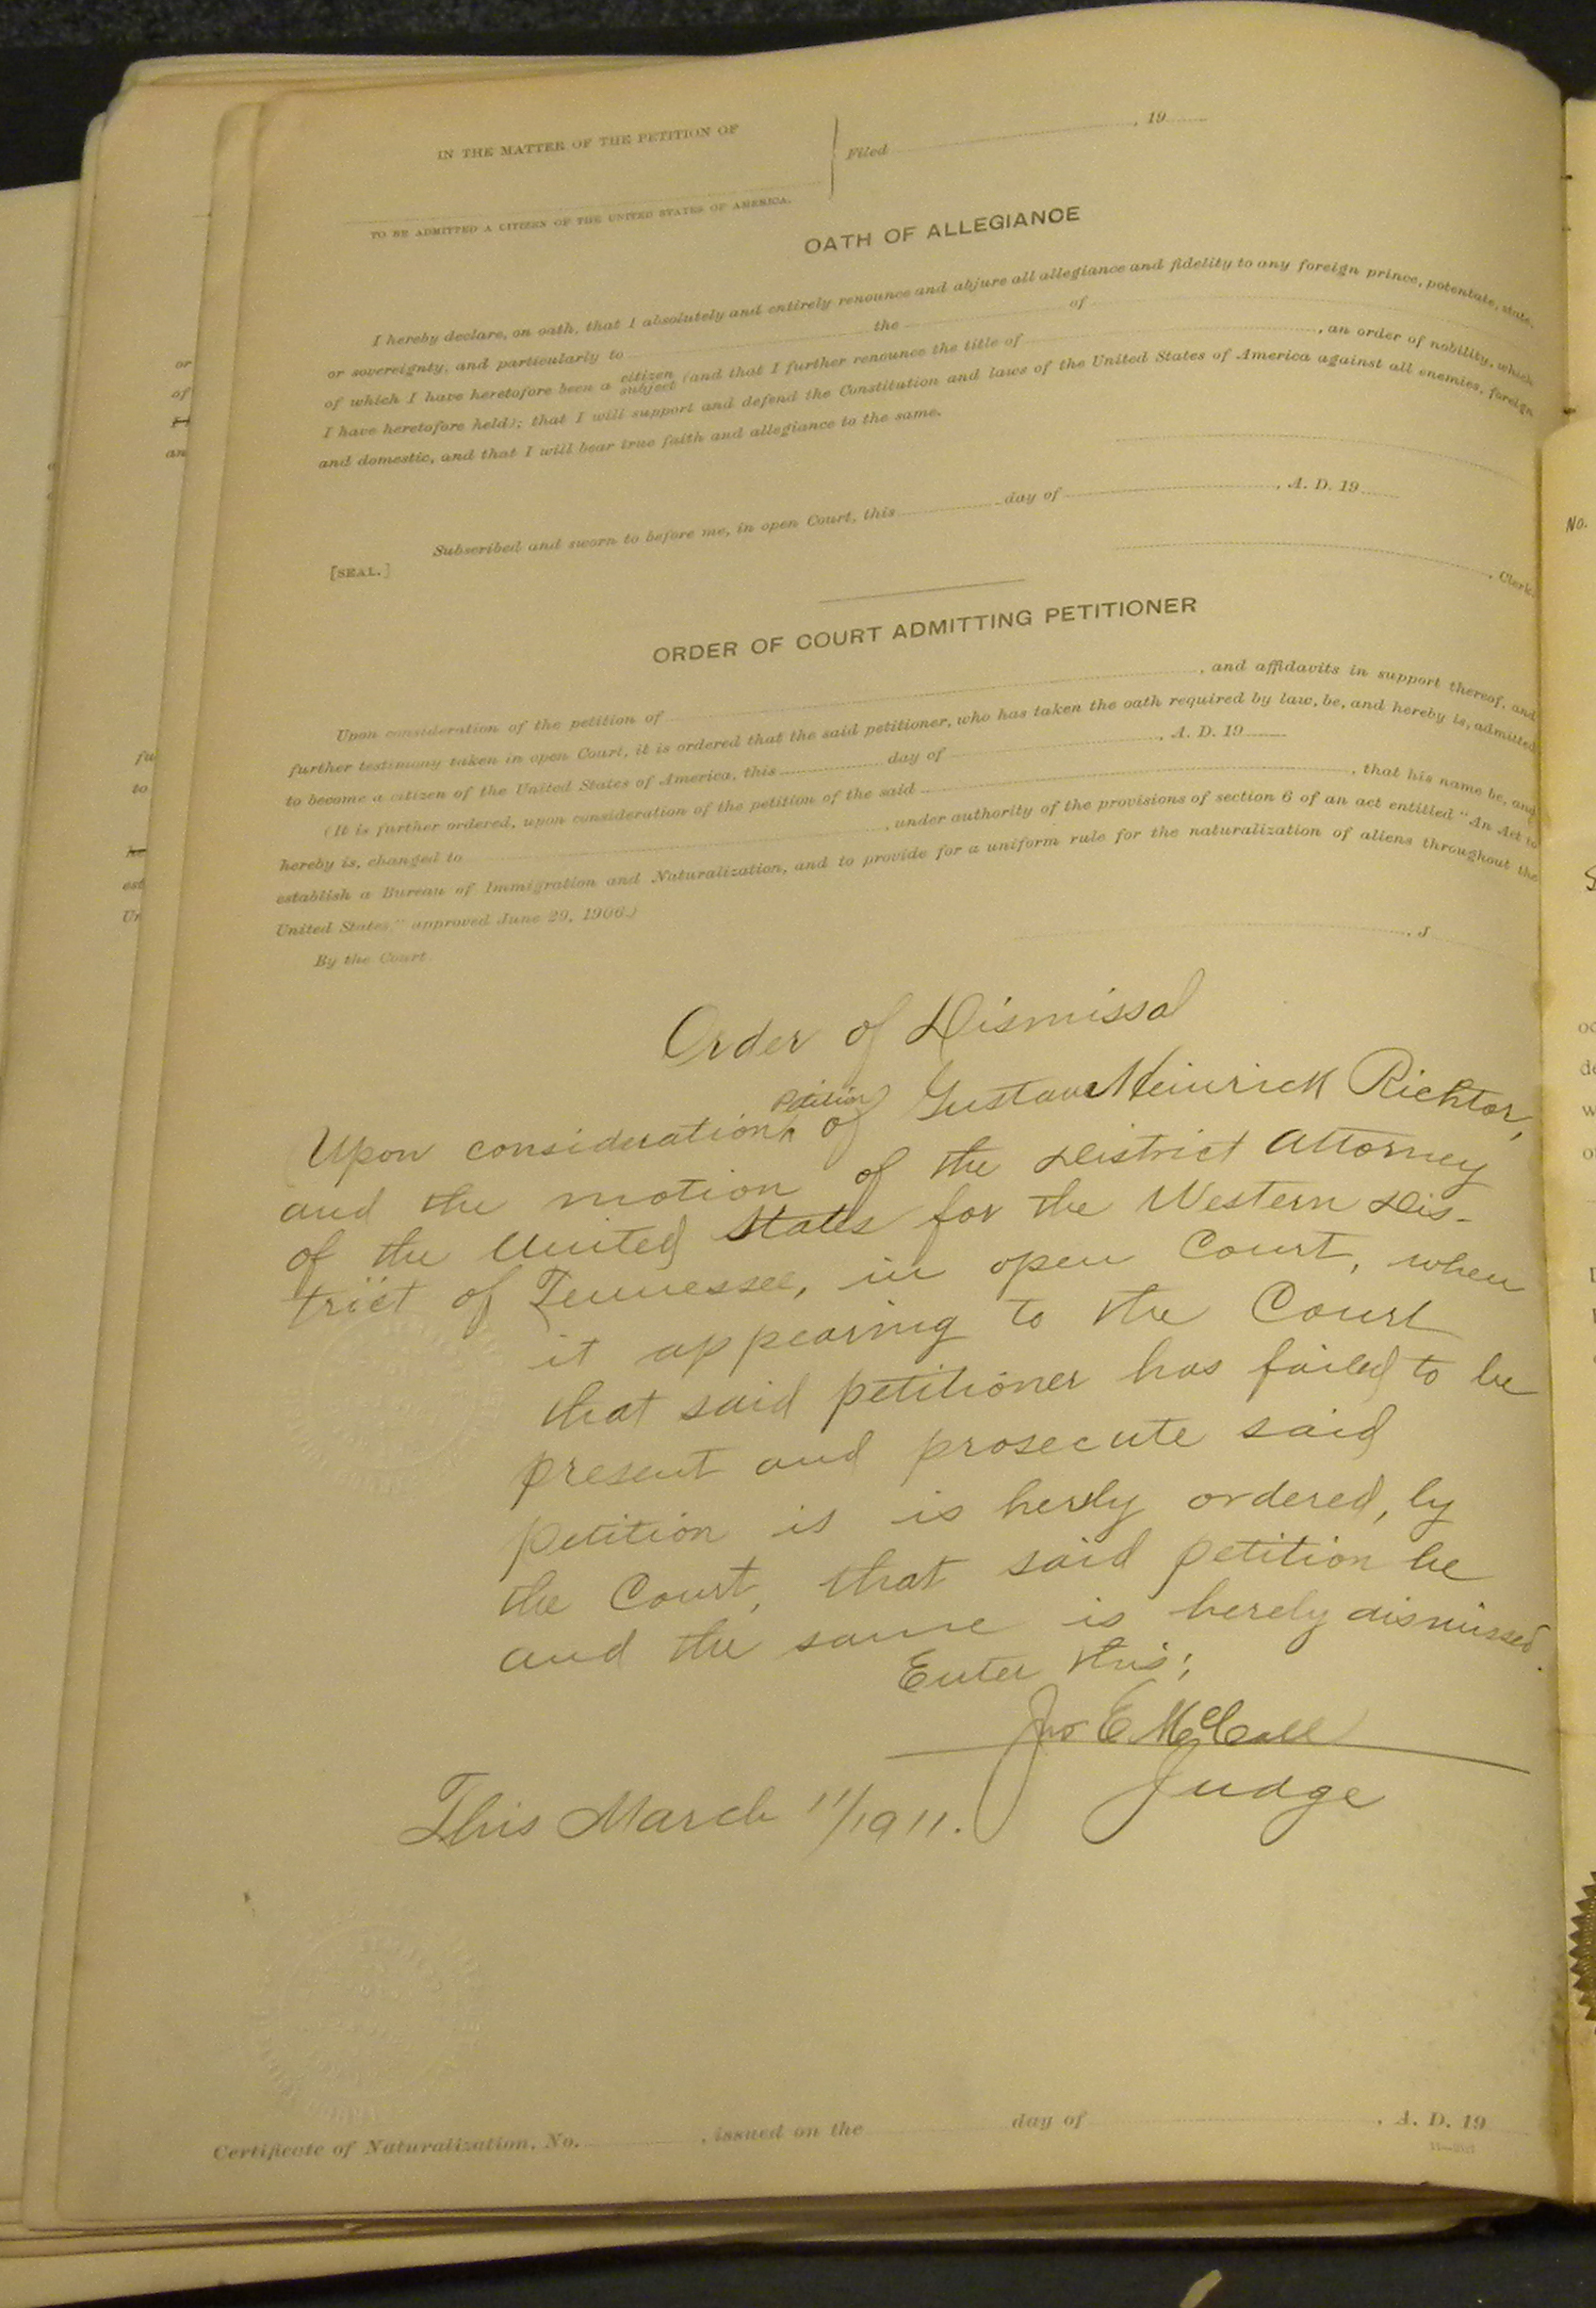 IN THE MATTER OF THE PETITION OF
Filed , 19
TO BE ADMITTED A CITIZEN OF THE UNITED STATES OF AMERICA.
OATH OF ALLEGIANCE
I hereby declare, on oath, that I absolutely and entirely renounce and abjure all allegiance and fidelity to any foreign prince, potentate, state,
or sovereignty, and particularly to the of
of which I have heretofore been a citizen subject (and that I further renounce the title of , an order of nobility, which
I have heretofore held); that I will support and defend the Constitution and laws of the United States of America against all enemies, foreign
and domestic, and that I will bear true faith and allegiance to the same.
Subscribed and sworn to before me, in open Court, this day of , A. D. 19
[SEAL.]
, Clerk.
ORDER OF COURT ADMITTING PETITIONER
Upon consideration of the petition of , and affidavits in support thereof, and
further testimony taken in open Court, it is ordered that the said petitioner, who has taken the oath required by law, be, and hereby is, admitted
to become a citizen of the United States of America, this day of , A. D. 19
(It is further ordered, upon consideration of the petition of the said , that his name be, and
hereby is, changed to , under authority of the provisions of section 6 of an act entitled "An Act to
establish a Bureau of Immigration and Naturalization, and to provide for a uniform rule for the naturalization of aliens throughout the
United States," approved June 29, 1906.)
By the Court
, J
Order of Dismissal
Petition
Upon consideration of Gustav Heinrich Richtor,
and the motion of the District Attorney
of the United States for the Western Dis-
trict of Tennessee, in open Court, when
it appearing to the Court
that said petitioner has failed to be
present and prosecute said
petition is is hereby ordered, by
the Court, that said petition be
and the same is hereby dismissed.
Enter this;
Jno E McCall
Judge
This March 11/1911.
Certificate of Naturalization, No. , issued on the day of , A. D. 19